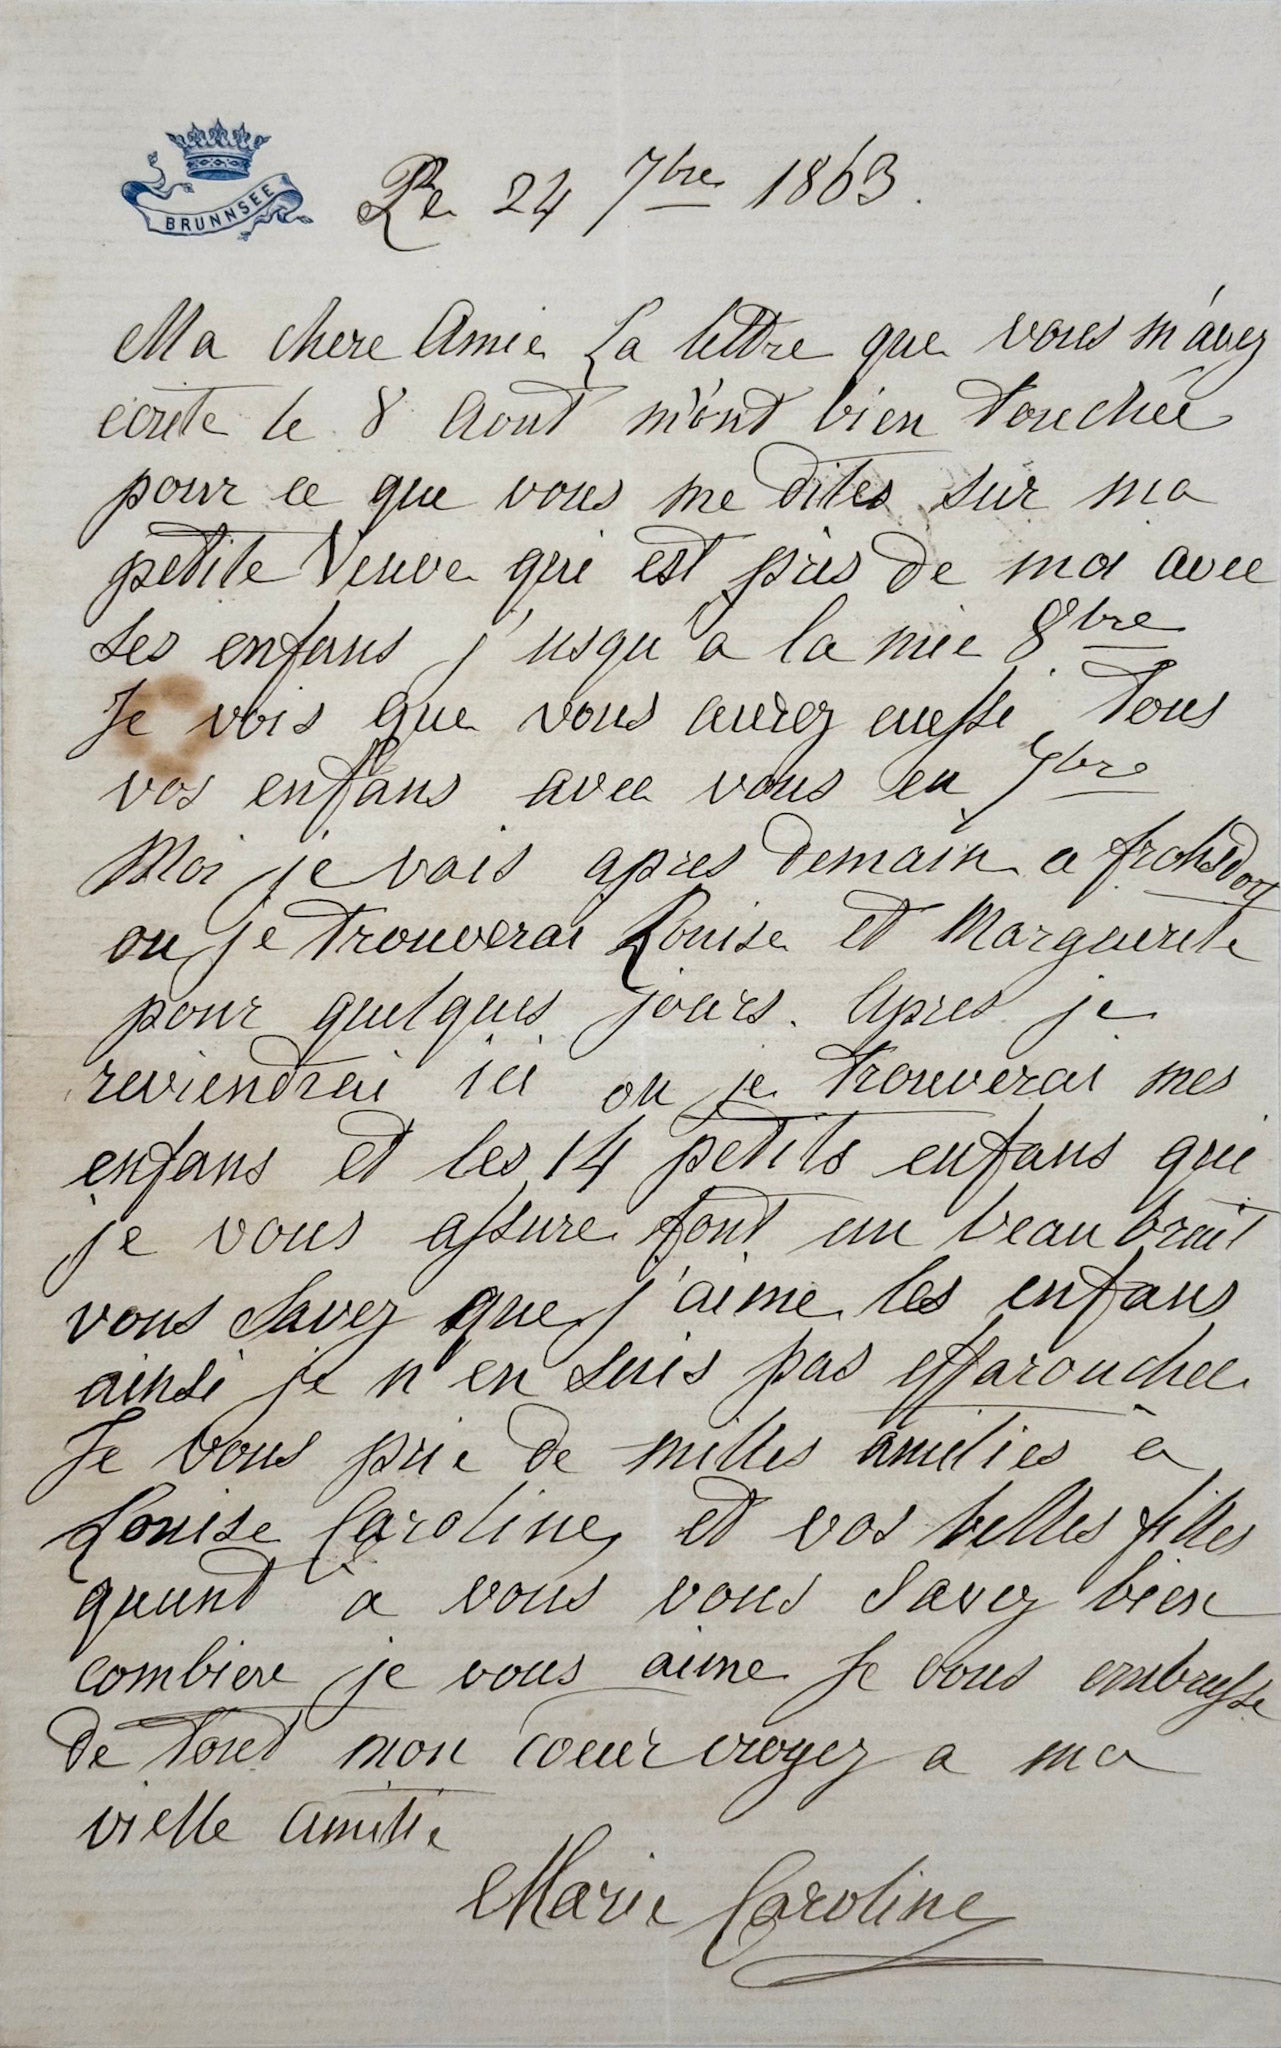 BRUNNSEE
Le 24 7bre 1863.
Ma chere Amie La lettre que vous m'avez
ecrite le 8 Aout m'ont bien touchée
pour ce que vous me dites sur ma
petite Veuve qui est près de moi avec
ses enfans j'usqu'a la mie 8bre
Je vois que vous aurez aussi tous
vos enfans avec vous en 7bre
Moi je vais apres demain a frohsdorf
ou je trouverai Louise et Marguerite
pour quelques jours. Apres je
reviendrai ici ou je trouverai mes
enfans et les 14 petits enfans qui
je vous assure font un beau bruit
vous savez que j'aime les enfans
ainsi je n'en suis pas effarouchee
Je vous prie de milles amities à
Louise Caroline, et vos belles filles
quant a vous vous savez bien
combien je vous aime Je vous embrasse
de tout mon coeur croyez a ma
vielle amitie
Marie Caroline